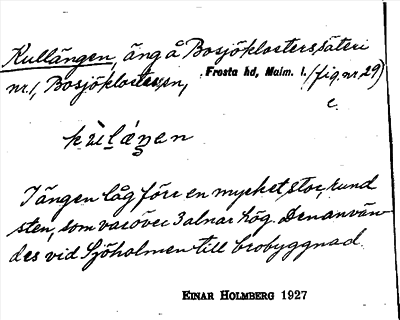 Kullängen, äng å Bosjöklosters säteri
nr. 1, Bosjökloster sn, Frosta hd, Malm. l. (fig. nr. 29)
c.
I ängen låg förr en mycket stor, rund
sten, som var över 3 alnar hög. Den använ-
des vid Sjöholmen till brobyggnad.
EINAR HOLMBERG 1927